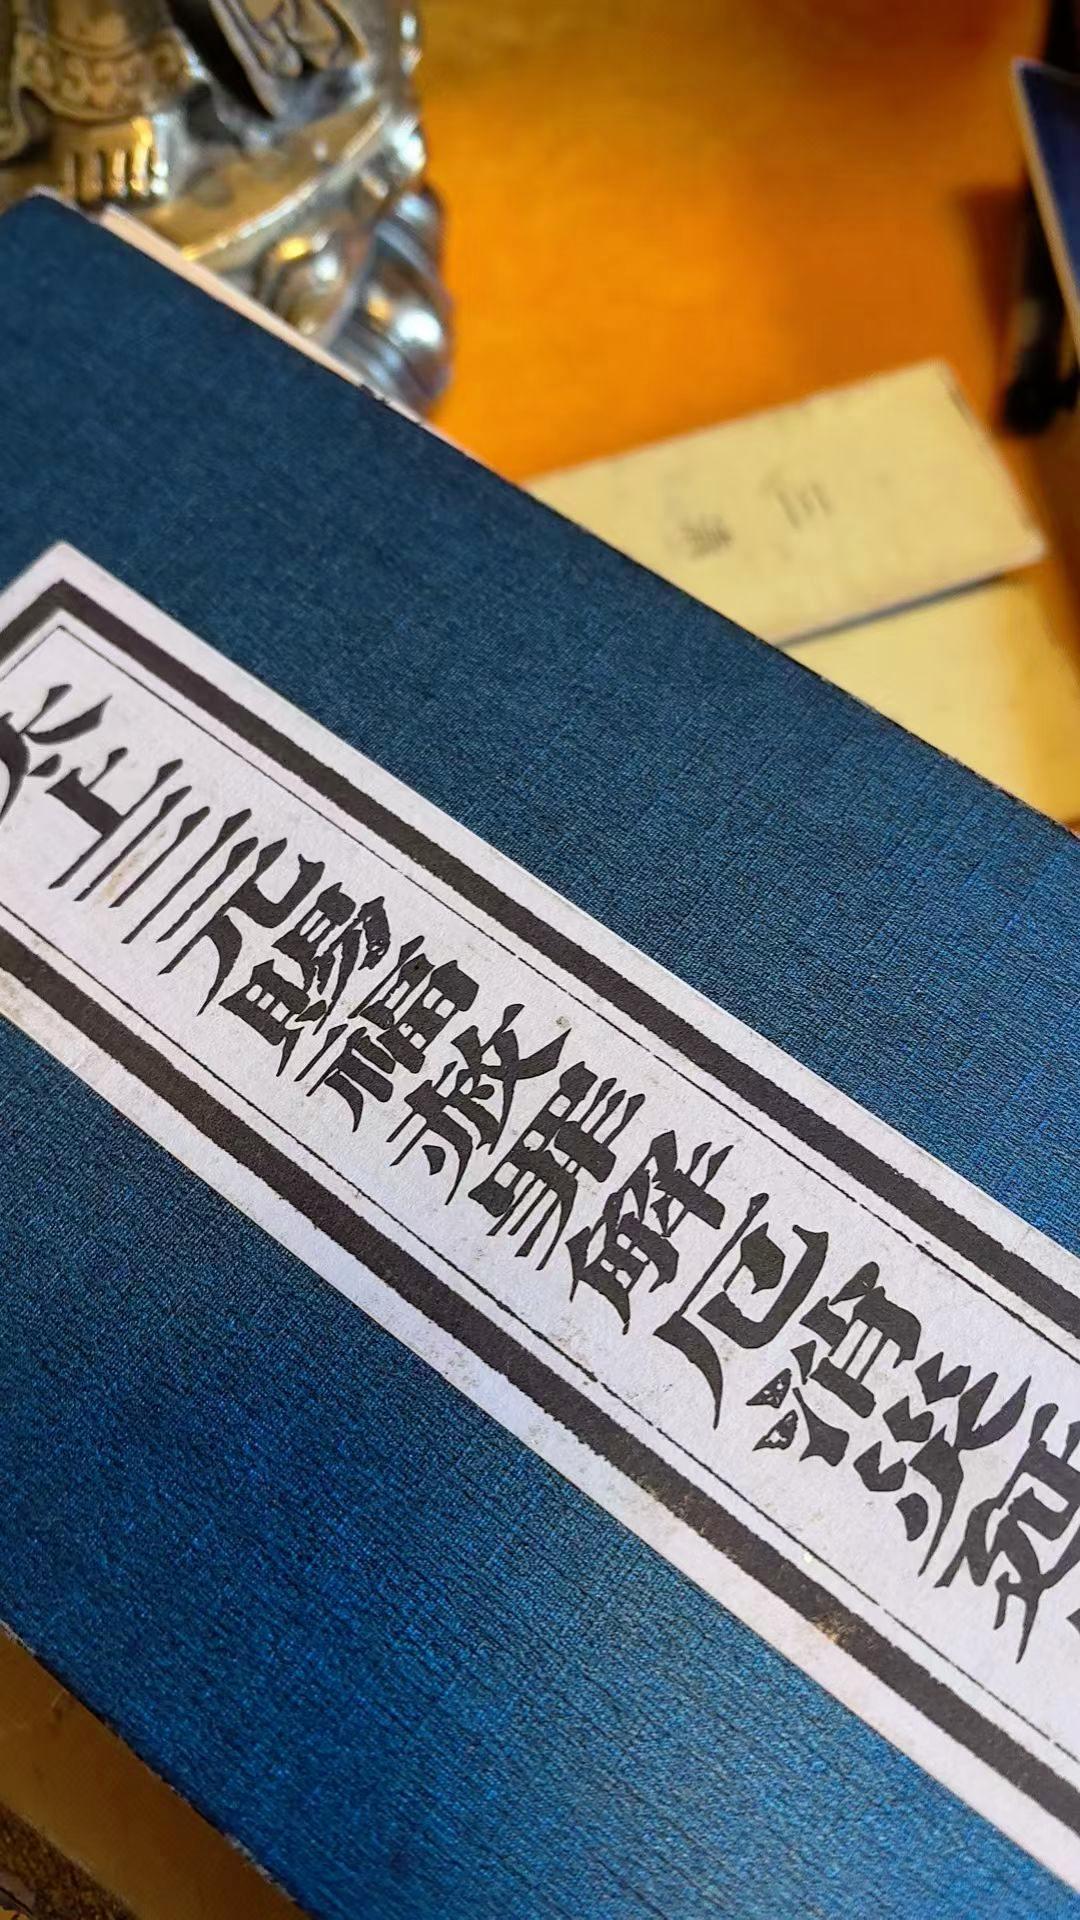 太上三元賜福赦罪解厄消災延